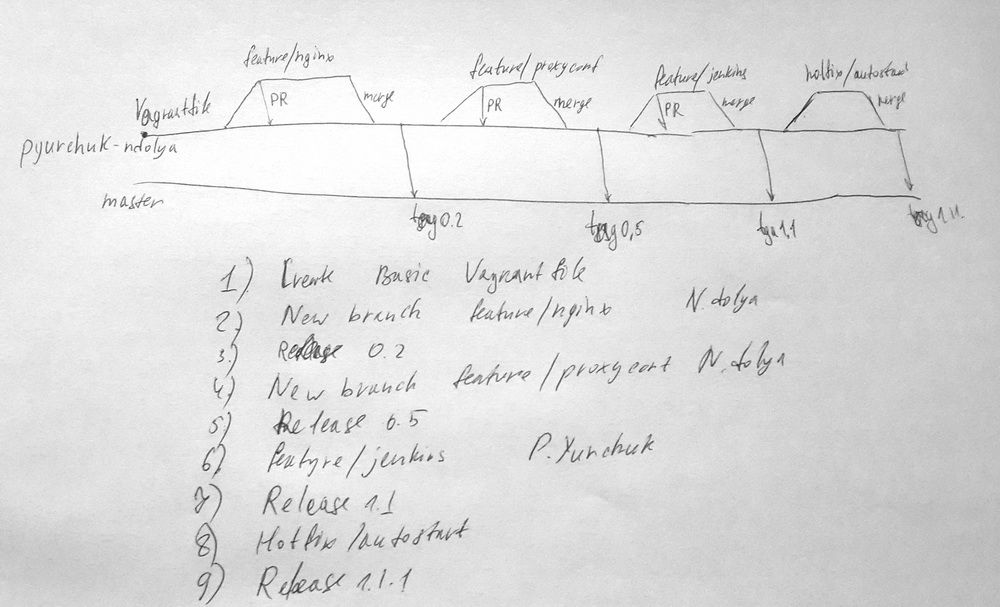 feature/nginx
feature/proxyconf
feature/jenkins
hotfix/autostart
Vagrantfile
PR
merge
PR
merge
PR
merge
merge
pyurchuk-ndolya
master
tag 0.2
tag 0,5
tga 1,1
tag 1.1.1
1) Create Basic Vagrantfile
2) New branch feature/nginx N.dolya
3.) Release 0.2
4) New branch feature/proxyconf N.dolya
5) Release 0.5
6) featyre/jenkins P.Yurchuk
7) Release 1.1
8) Hotfix/autostart
9) Release 1.1.1